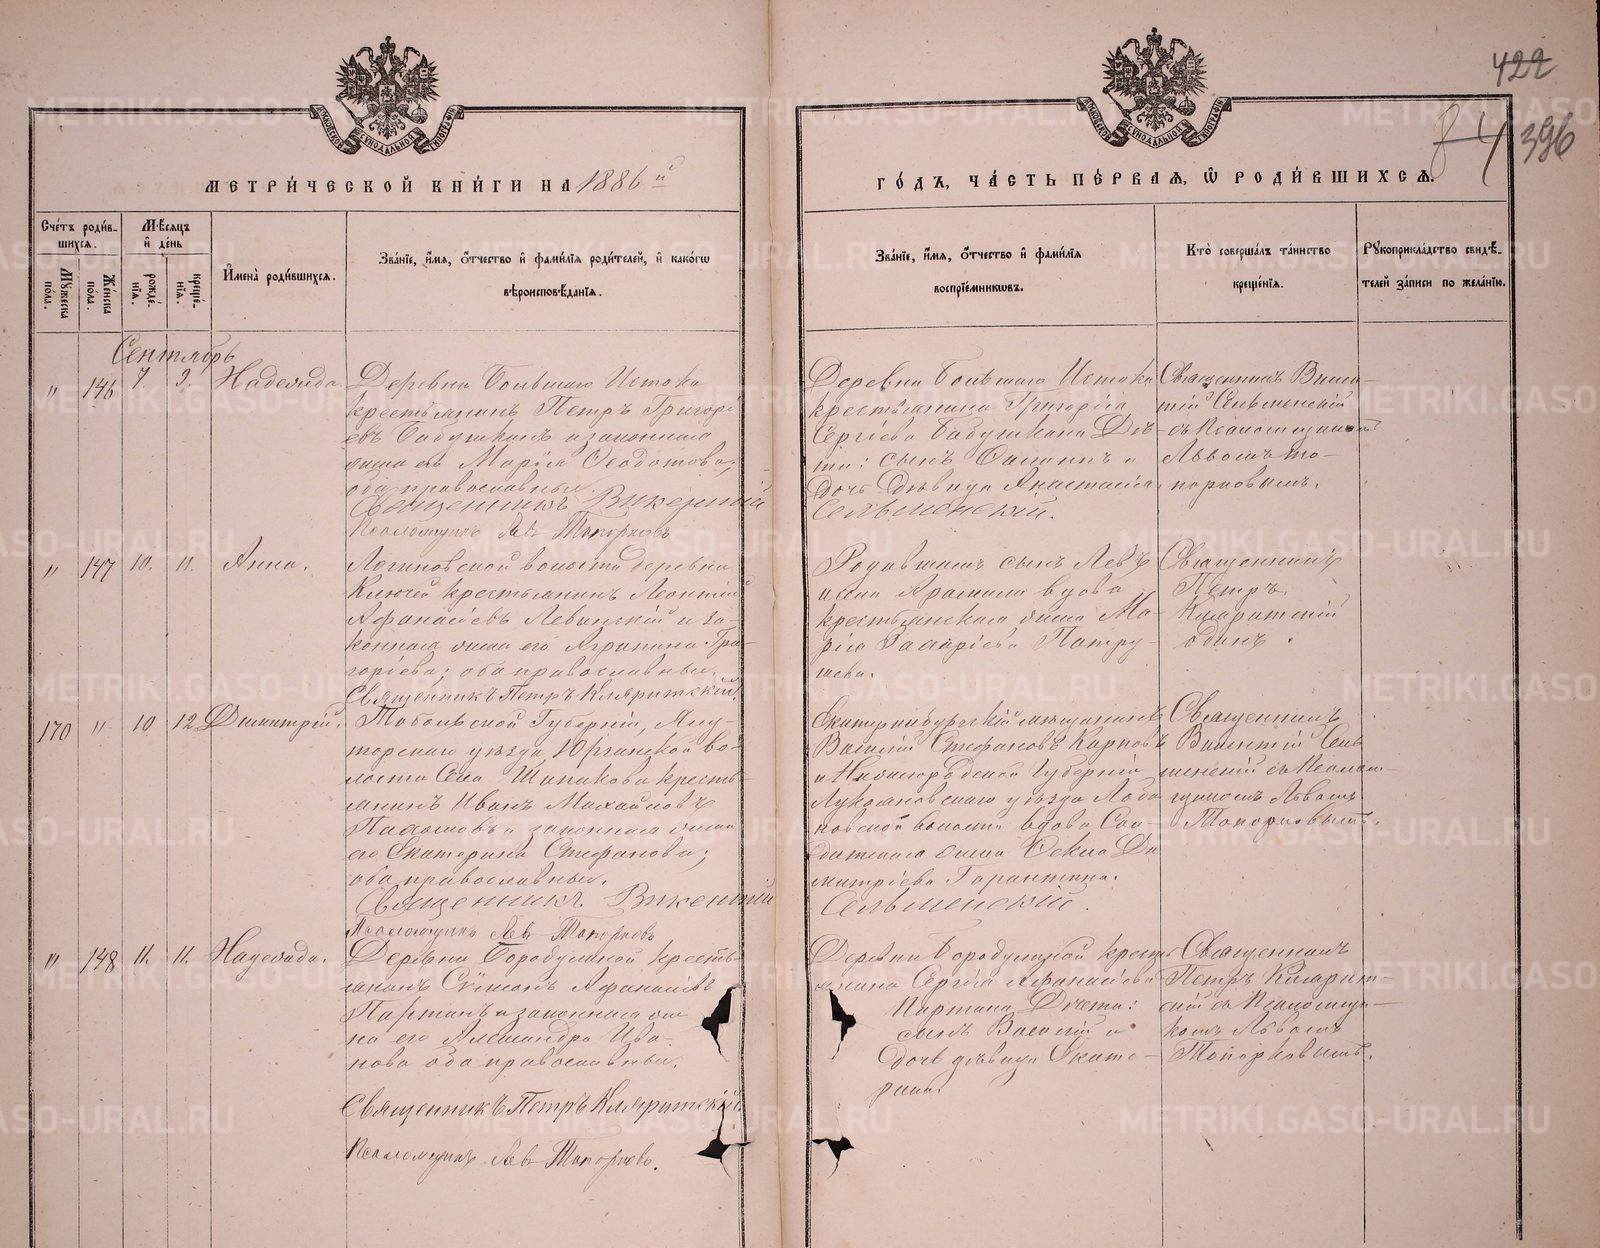 422
396
МЕТРИ́ЧЕСКОЙ КНИ́ГИ НА 1886 й
ГО́ДЪ, ЧА́СТЬ ПЕ́РВАЯ, Ѡ РОДИ́ВШИХСЯ.
Сче́тъ роди́в-
шихся.
Мꙋжеска пола.
Же́нска по́ла
Мѣсяцъ
и҆ де́нь
рожде́-
нія.
креще́-
нія.
И҆мена̀ роди́вшихся.
Зва́ніе, и҆́мя, ѻ҆́тчество и҆ фами́лія роди́телей, и҆ како́гѡ
вѣроисповѣ́данія.
Зва́ніе, и҆́мя, ѻ҆́тчество и҆ фами́лія
воспріе́мникѡвъ.
Кто̀ соверша́лъ та́инство
креще́нія.
Рꙋкоприкла́дство свидѣ́-
телей за́писи по жела́нію.
Сентябрь
" 146 7. 9. Надежда.
Деревни Большаго Истока
крестьянинъ Петръ Григорі
евъ Бабушкинъ и законная
жена его Марія Ѳеодотова;
оба православные.
Священникъ Викентій
Псаломщикъ Левъ Топорковъ
Деревни Большаго Истока
крестьянина Григорія
Сергіева Бабушкина Дѣ-
ти: сынъ и
дочь дѣвица Анастасія.
Сельменскій.
Священникъ Викен-
тій Сельменскій
съ Псаломщикомъ
Львомъ То-
порковымъ.
" 147 10. 11. Анна.
Логиновской волости деревни
Ключей крестьянинъ Леонтій
Аѳанасіевъ Левинскій и за-
конная жена его Агрипина Гри-
горіева; оба православные.
Священникъ Петръ Кляритскій.
Родившаго сынъ Левъ
и села Арамили вдова
крестьянская жена Ма-
рія Патру-
шева.
Священникъ
Петръ
Кляритскій
одинъ.
170 " 10 12 Димитрій.
Тобольской Губерніи, Ялу-
торскаго уѣзда Юрганской во-
лости Села Шипакова кресть-
янинъ Иванъ Михайловъ
и законная жена
его Екатерина Стефанова;
оба православные.
Священникъ Викентій
Псаломщикъ Левъ Топорковъ
Екатеринбургскій мѣщанинъ
Василій Стефановъ Карповъ
и Нижегородской Губерніи
Лукояновскаго уѣзда Лоба
новской волости вдова Сол-
датская жена Ѳекла Ди
митріева Гарантина.
Сельменскій.
Священникъ
Викентій Сель
менскій съ Псалом-
щикомъ Львомъ
Топорковымъ.
" 148 11. 11. Надежда.
Деревни Бородулиной кресть-
янинъ Сѷмеонъ Аѳанасіевъ
Партинъ и законная же
на его Александра Ива-
нова оба православные.
Священникъ Петръ Кляритскій.
Псаломщикъ Левъ Топорковъ.
Деревни Бородулиной кресть
янина Сергія Аѳанасіева
Партина Дѣти:
сынъ Василій и
дочь дѣвица Екате-
рина.
Священникъ
Петръ Кларит-
скій съ Псаломщи-
комъ Львомъ
Топорковымъ.
METRIKI.GASO-URAL.RU